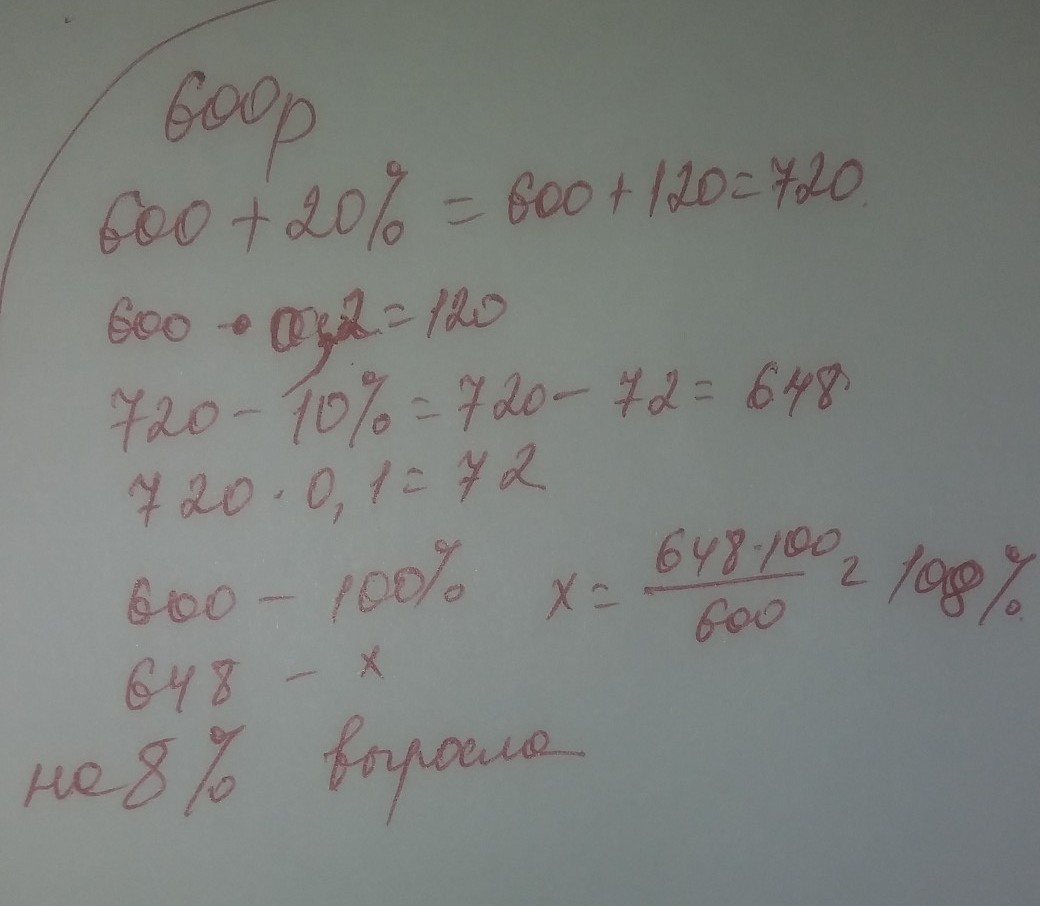 600р
600 + 20% = 600 + 120 = 720.
600 · 0,2 = 120
720 - 10% = 720 - 72 = 648
720 · 0,1 = 72
600 - 100% x = 648·100/600 = 108%
648 - x
на 8% выросла